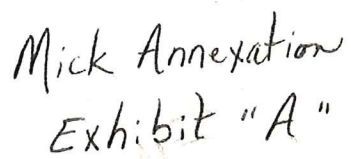 Mick Annexation
Exhibit "A"